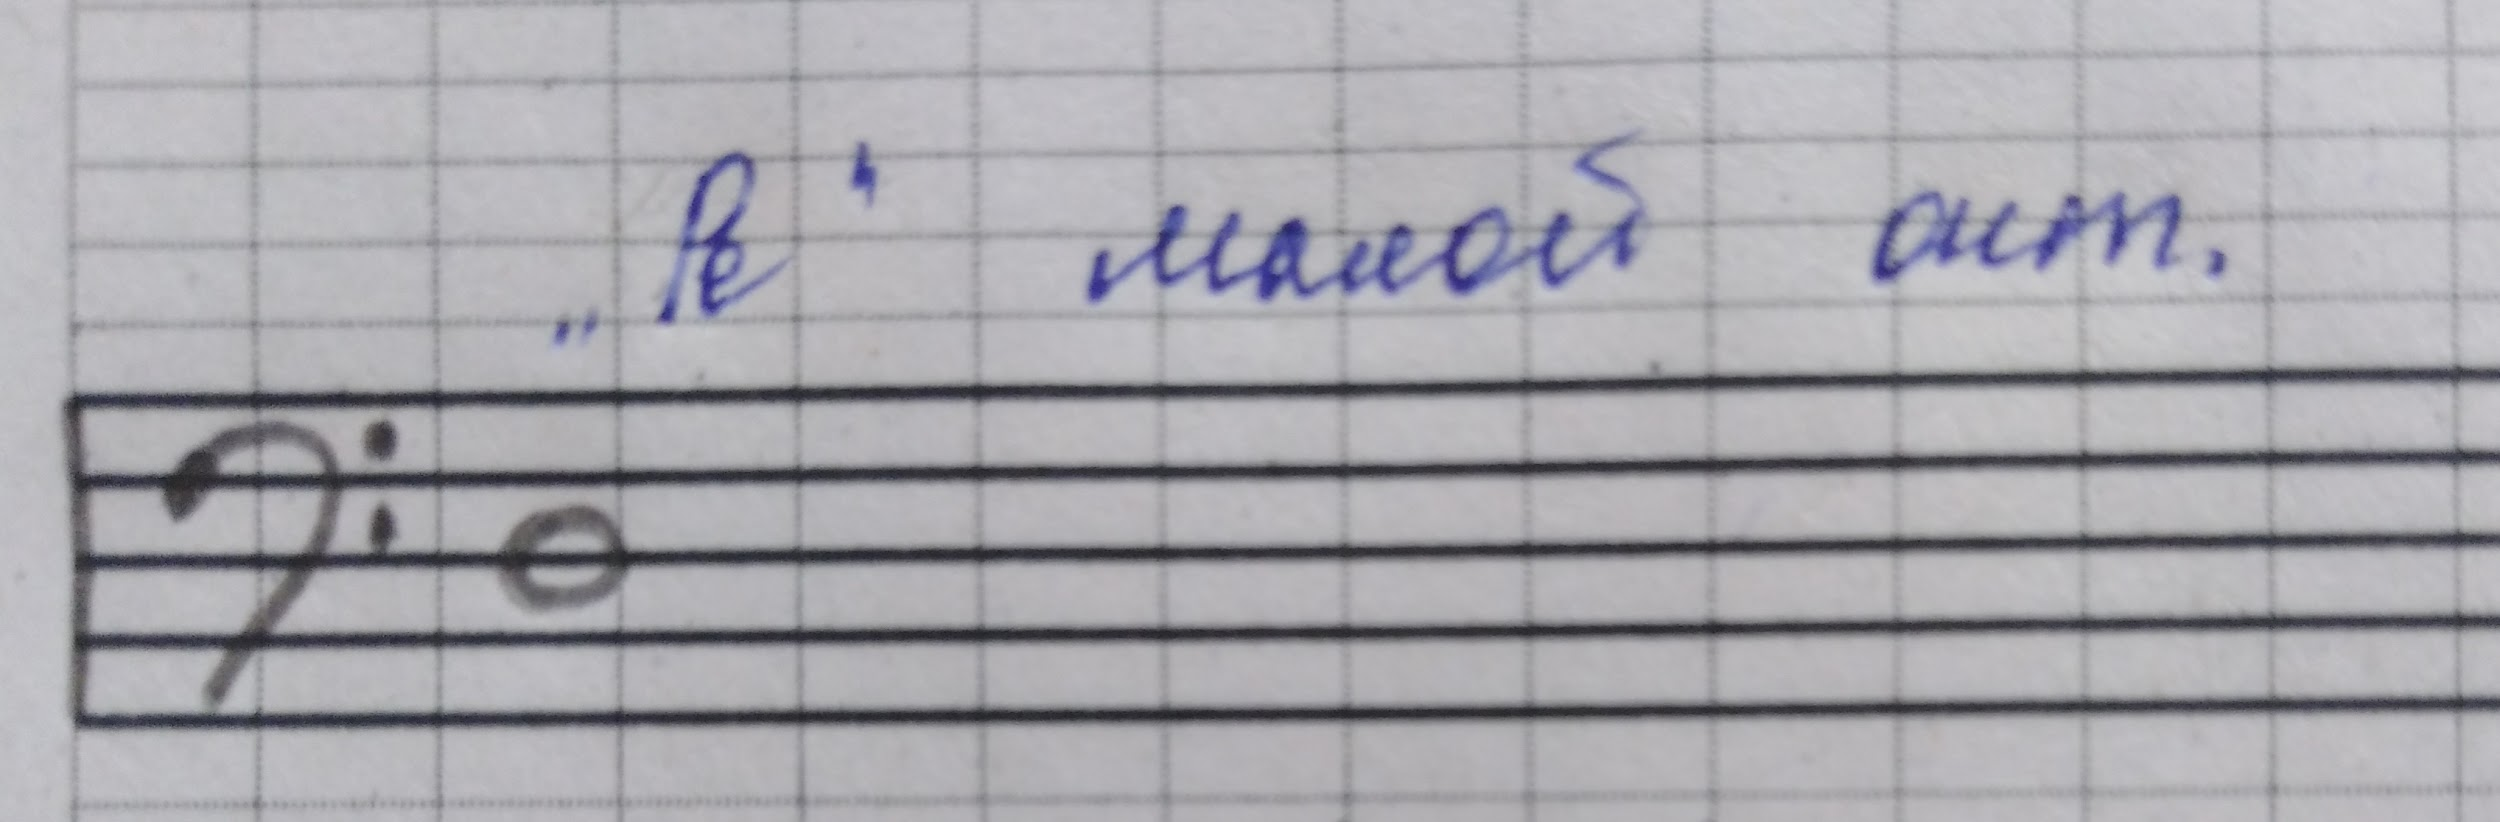 „Ре“ малой окт.